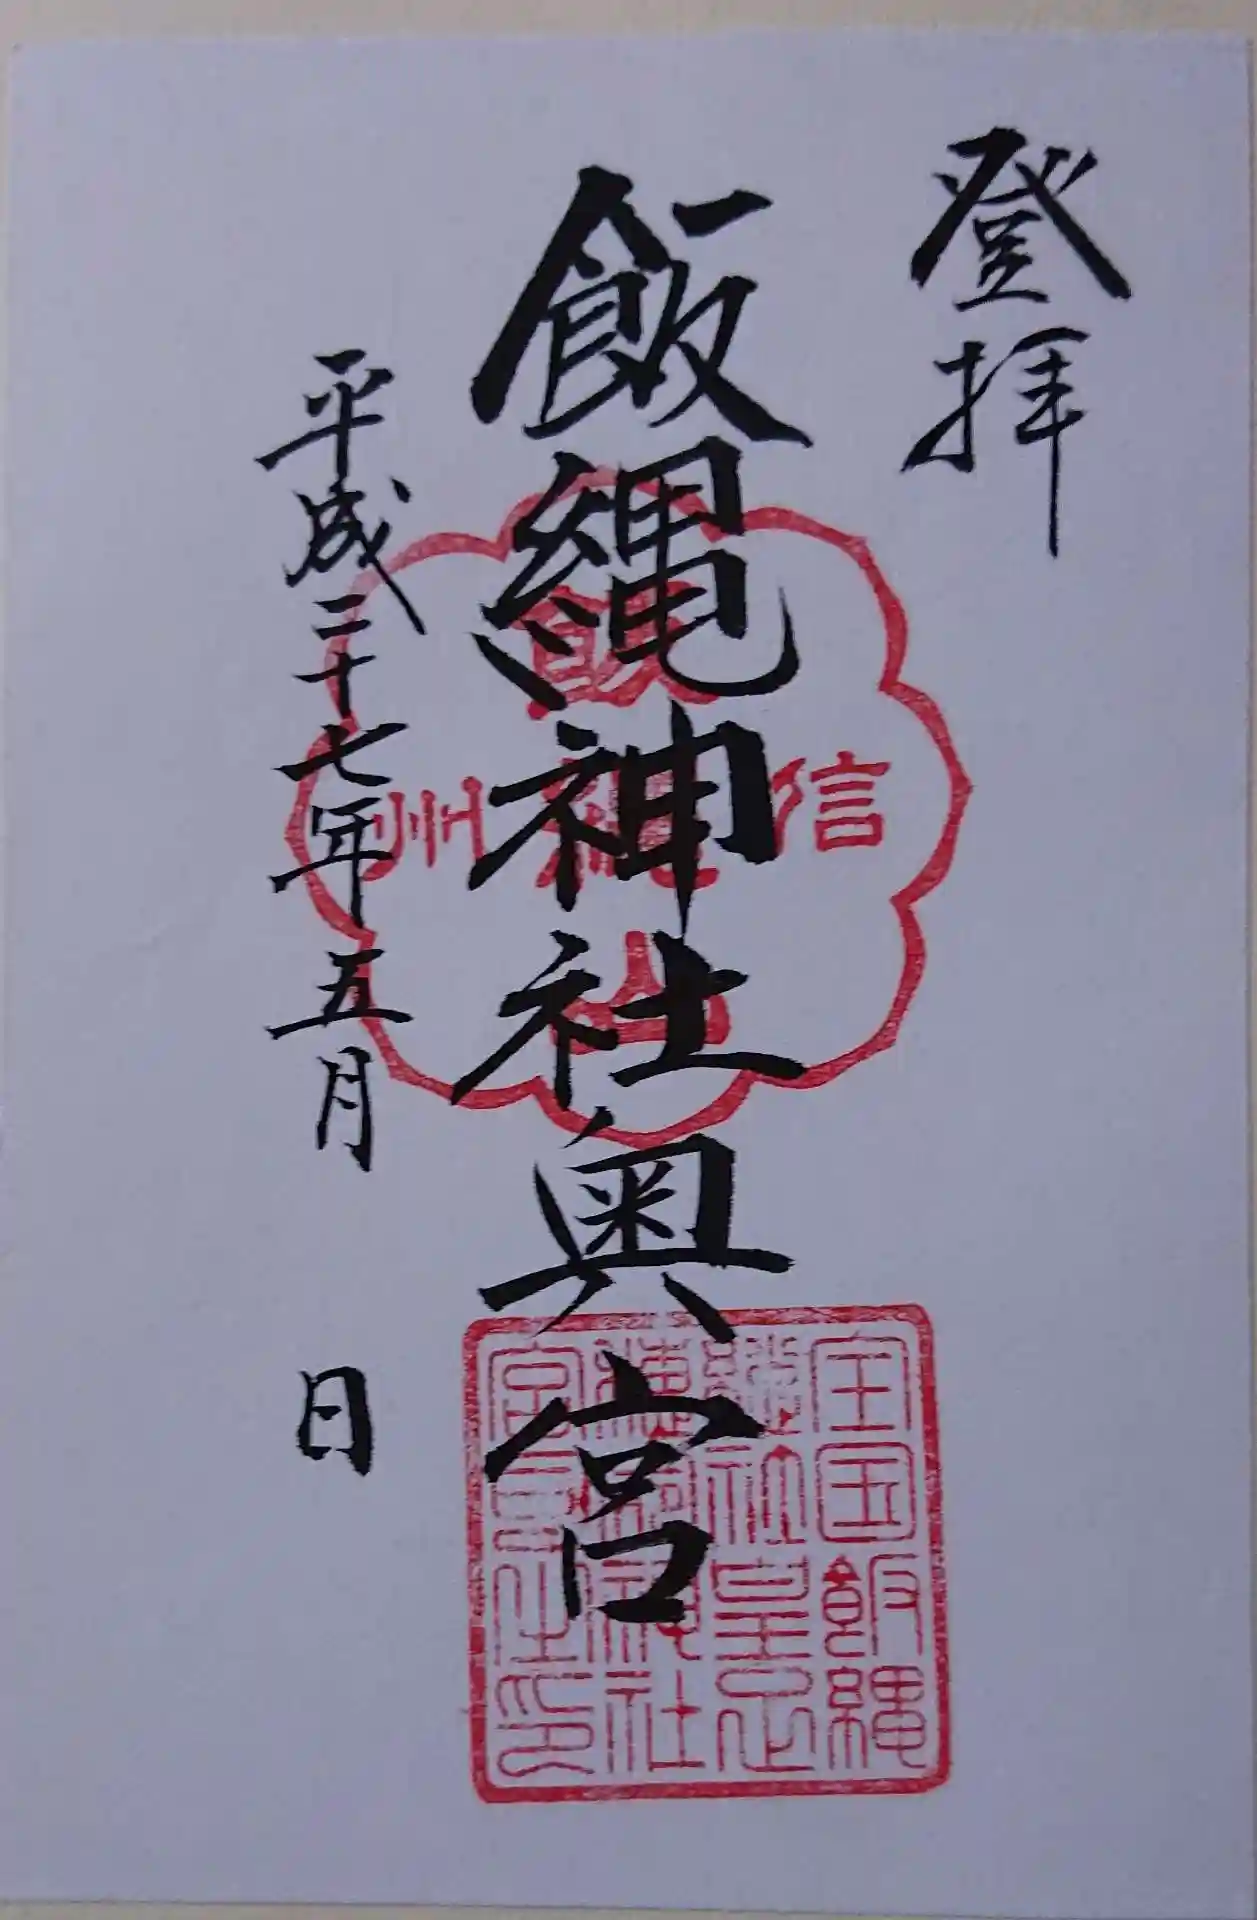 登拝
飯縄神社奥宮
平成二十七年五月 日
信州
飯縄山
全国飯縄
総社皇足
穂命神社
宮司之印